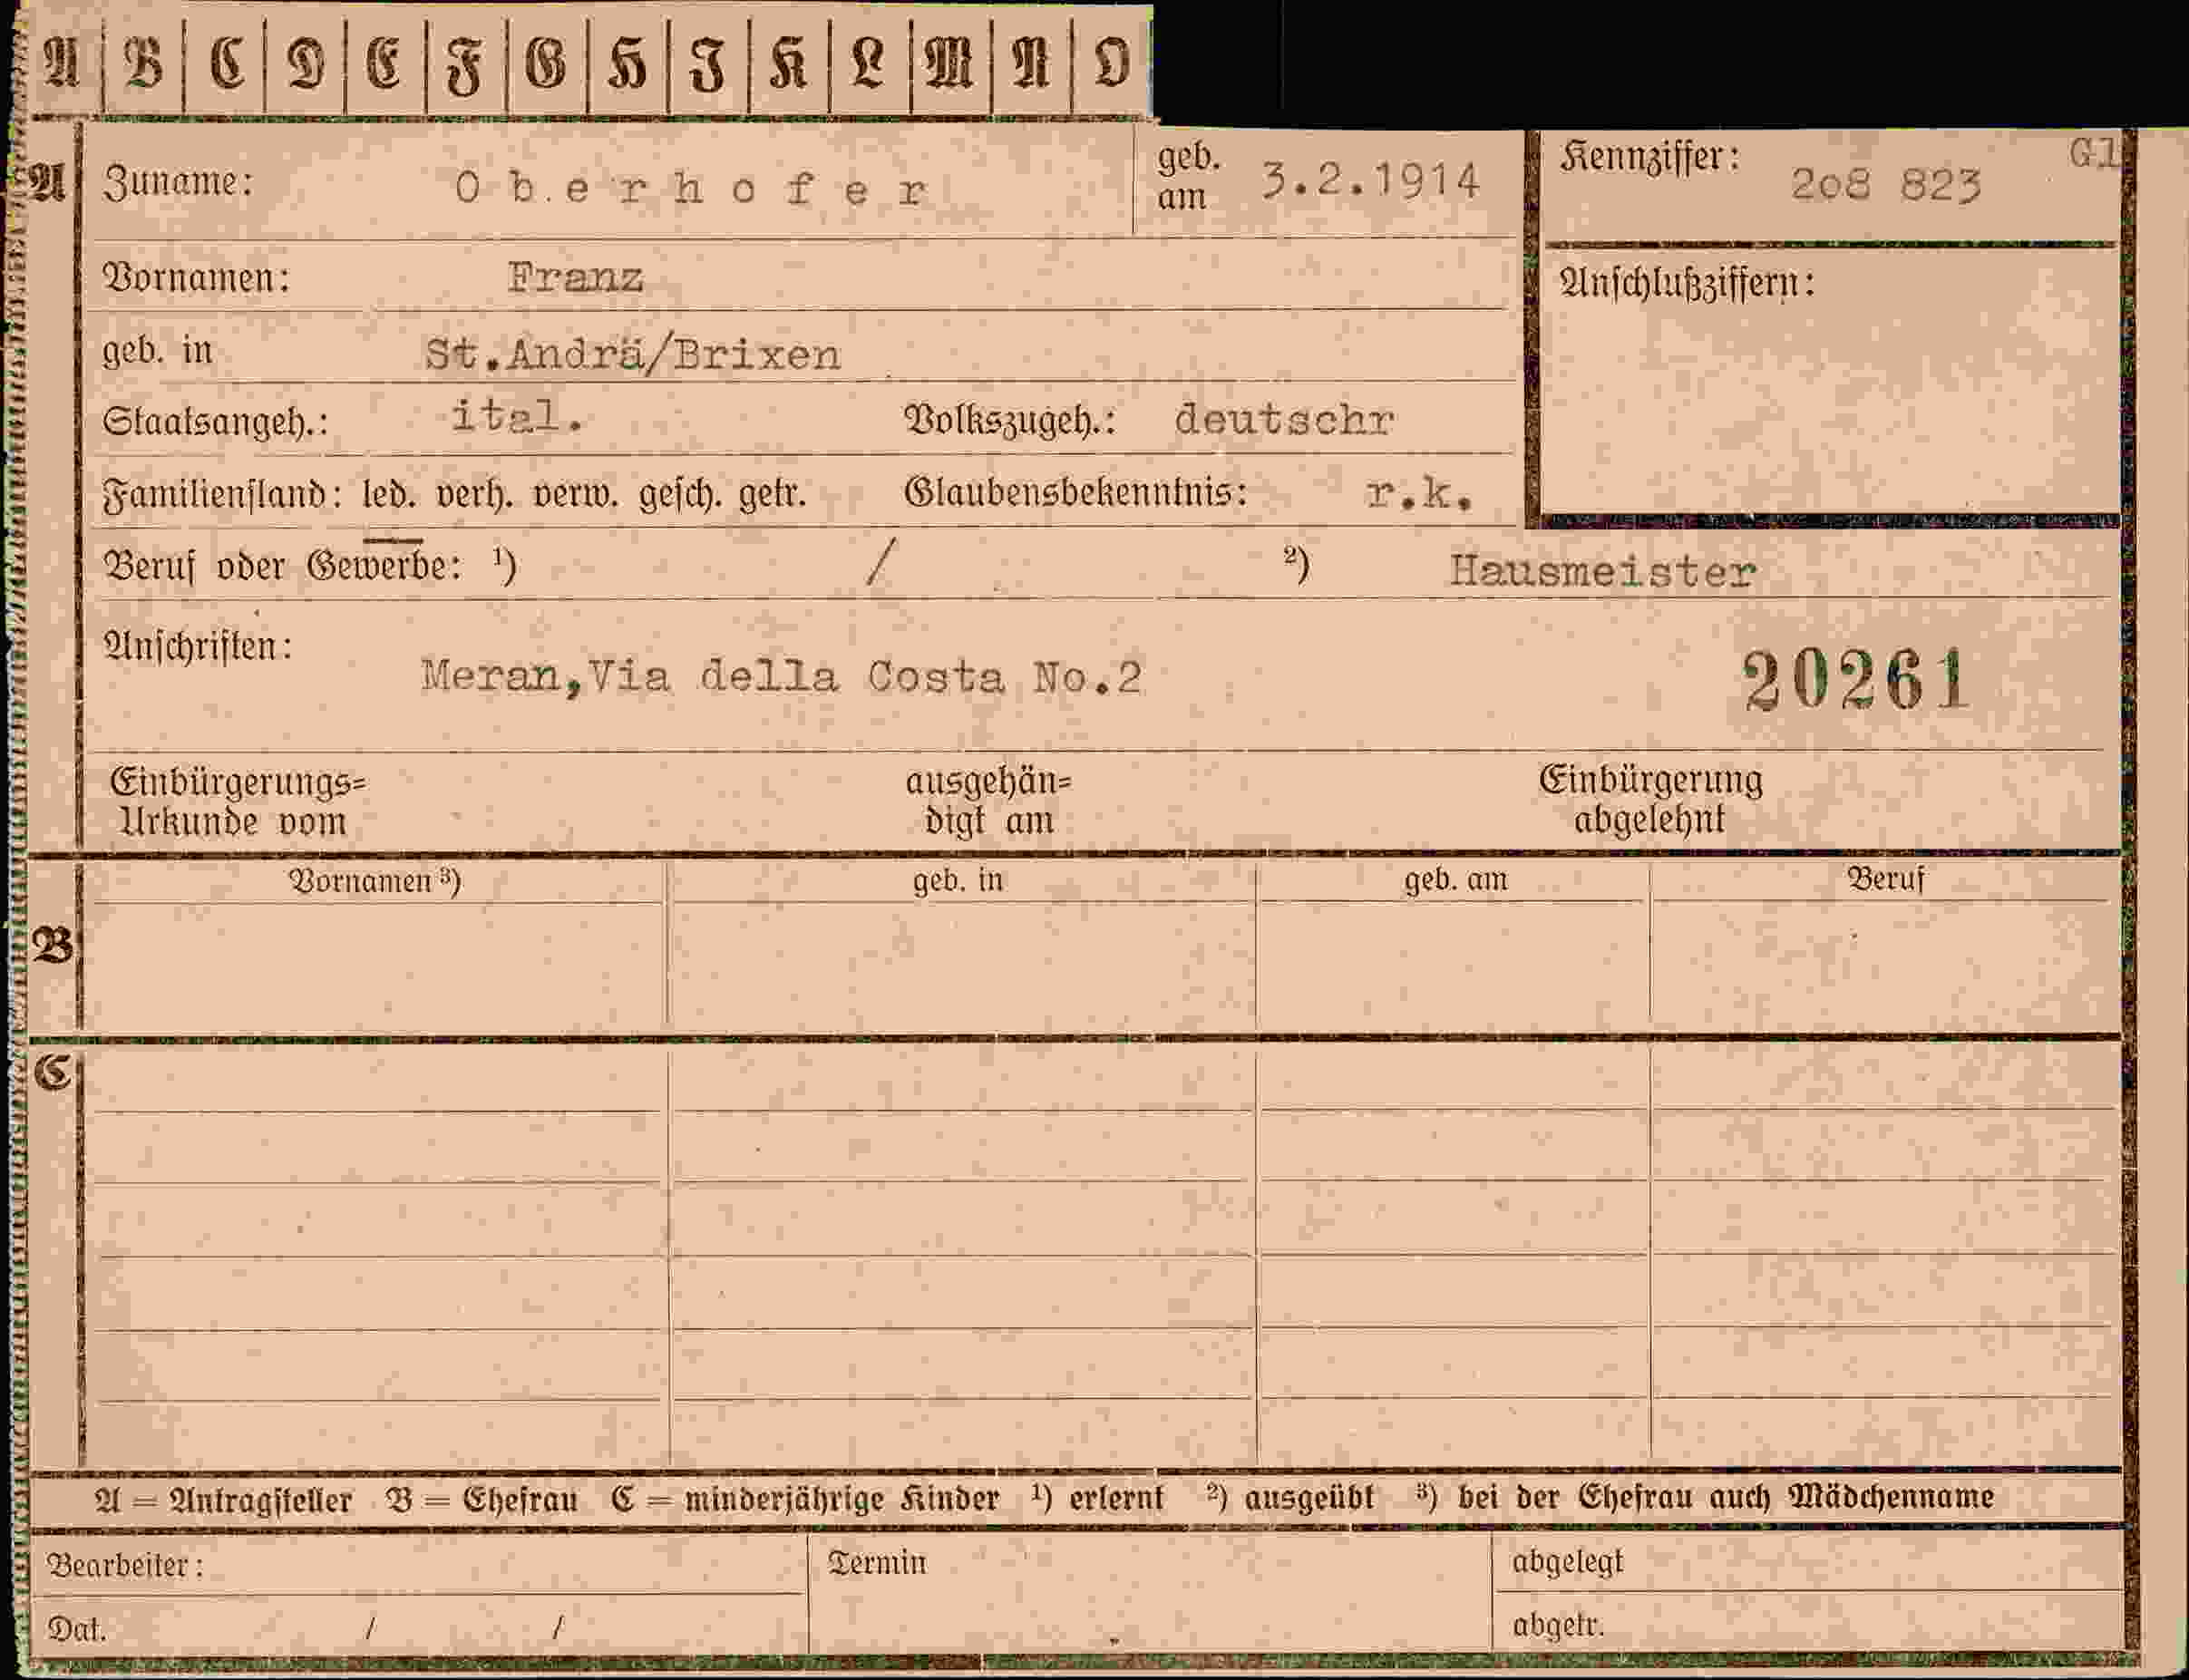 A B C D E F G H I K L M N O
A Zuname: Oberhofer geb. am 3.2.1914 Kennziffer: 208 823 G1
Vornamen: Franz Anschlußziffern:
geb. in St.Andrä/Brixen
Staatsangeh.: ital. Volkszugeh.: deutschr
Familienstand: led. verh. verw. gesch. getr. Glaubensbekenntnis: r.k.
Beruf oder Gewerbe: ¹) / ²) Hausmeister
Anschriften: Meran,Via della Costa No.2 20261
Einbürgerungs= ausgehän= Einbürgerung
Urkunde vom digt am abgelehnt
Vornamen ³) geb. in geb. am Beruf
B
C
A = Antragsteller B = Ehefrau C = minderjährige Kinder ¹) erlernt ²) ausgeübt ³) bei der Ehefrau auch Mädchenname
Bearbeiter: Termin abgelegt
Dat. / / abgetr.